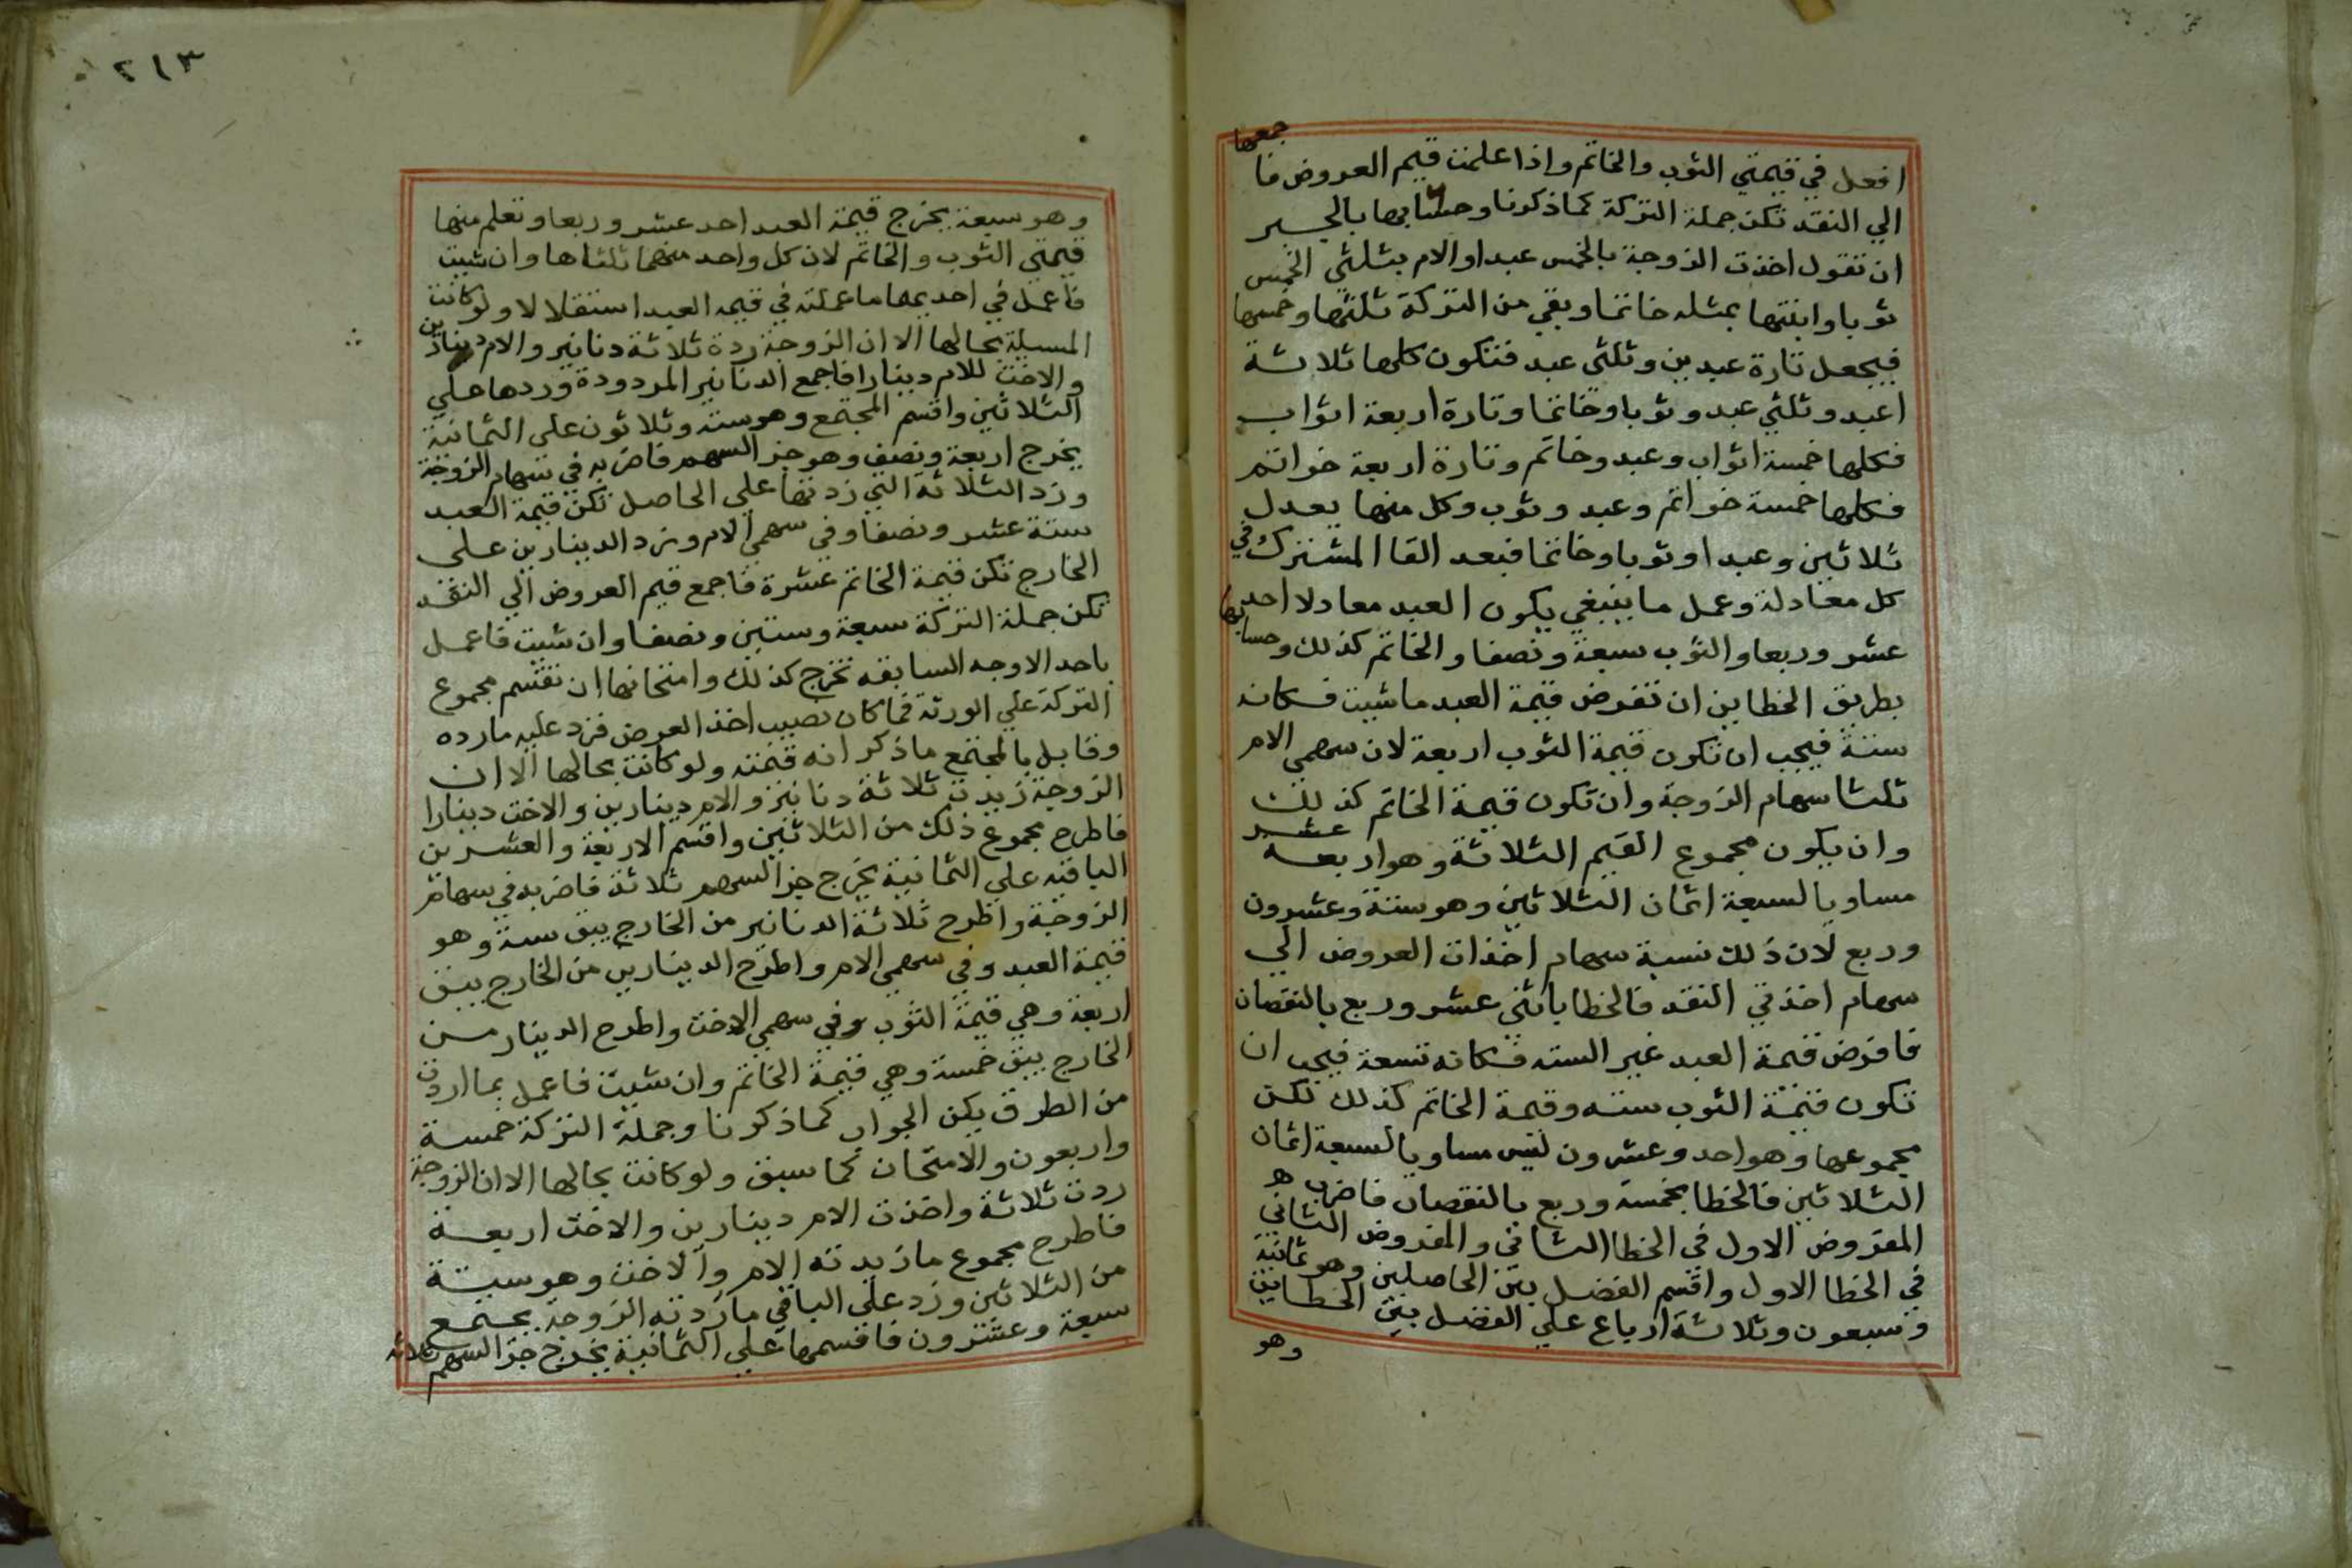 افعل في قيمتي الثوب والخاتم واذا علمت قيم العروض فا جمعها
الي النقد تكن جملة التركة كما ذكرنا وحسابها بالجبر
ان تقول اخذت الزوجة بالخمس عبدا والام بثلثي الخمس
ثوبا وابنتها بمثله خاتما وبقي من التركة ثلثها وخمسها
فيجعل تارة عبدين وثلثي عبد فتكون كلها ثلاثة
اعبد وثلثي عبد وثوبا وخاتما وتارة اربعة اثواب
فكلها خمسة اثواب وعبد وخاتم وتارة اربعة خواتم
فكلها خمسة خواتم وعبد وثوب وكل منها يعدل
ثلاثين وعبدا وثوبا وخاتما فبعد القا المشترك في
كل معادلة وعمل ما ينبغي يكون العبد معادلا احد
عشر وربعا والثوب سبعة ونصفا والخاتم كذلك وحسابها
بطريق الخطاين ان تفرض قيمة العبد ما شيت فكانه
ستة فيجب ان تكون قيمة الثوب اربعة لان سهمي الام
ثلثا سهام الزوجة وان تكون قيمة الخاتم كذلك
وان يكون مجموع القيم الثلاثة وهو اربعه عشر
مساويا لسبعة اثمان الثلاثين وهو ستة وعشرون
وربع لان ذلك نسبة سهام اخذات العروض الي
سهام اخذتي النقد فالخطا باثني عشر وربع بالنقصان
فافرض قيمة العبد غير السته فكانه تسعة فيجب ان
تكون قيمة الثوب سته وقيمة الخاتم كذلك لكن
مجموعها وهو احد وعشرون ليس مساويا لسبعة اثمان
الثلاثين فالخطا بخمسة وربع بالنقصان فاضرب
المفروض الاول في الخطا الثاني والمفروض الثاني
في الخطا الاول واقسم الفضل بين الحاصلين وهو ثمانية
وسبعون وثلاثة ارباع علي الفضل بين الخطاين
وهو
٢١٣
وهو سبعة يخرج قيمة العبد احد عشر وربعا وتعلم منها
قيمتي الثوب والخاتم لان كل واحد منهما ثلثاها وان شيت
فاعمل في احديهما ما عملته في قيمه العبد استقلالا ولو كانت
المسيلة بحالها الا ان الزوجة ردة ثلاثة دنانير والام دينارين
والاخت للام دينارا فاجمع الدنانير المردودة وردها علي
الثلاثين واقسم المجتمع وهو سته وثلاثون علي الثمانية
يخرج اربعة ونصف وهو جز السهم فاضربه في سهام الزوجة
وزد الثلاثة التي زدتها علي الحاصل تكن قيمة العبد
ستة عشر ونصفا وفي سهمي الام وزد الدينارين علي
الخارج تكن قيمة الخاتم عشرة فاجمع قيم العروض الي النقد
تكن جملة التركة سبعة وستين ونصفا وان شيت فاعمل
باحد الاوجه السابقه تخرج كذلك وامتحانها ان تقسم مجموع
التركة علي الورثة فما كان نصيب اخذ العرض فزد عليه ما رده
وقابل بالمجتمع ما ذكر انه قيمته ولو كانت بحالها الا ان
الزوجة زيدت ثلاثة دنانير والام دينارين والاخت دينارا
فاطرح مجموع ذلك من الثلاثين واقسم الاربعة والعشرين
الباقيه علي الثمانية يخرج جز السهم ثلاثة فاضربه في سهام
الزوجة واطرح ثلاثة الدنانير من الخارج يبق ستة وهو
قيمة العبد وفي سهمي الام واطرح الدينارين من الخارج يبق
اربعة وهي قيمة الثوب وفي سهمي الاخت واطرح الدينار من
الخارج يبق خمسة وهي قيمة الخاتم وان شيت فاعمل بما اردت
من الطرق يكن الجواب كما ذكرنا وجملة التركة خمسة
واربعون والامتحان كما سبق ولو كانت بحالها الا ان الزوجة
ردت ثلاثة واخذت الام دينارين والاخت اربعة
فاطرح مجموع ما زيدته الام والاخت وهو ستة
من الثلاثين وزد علي الباقي ما زدته الزوجة يجتمع
سبعة وعشرون فاقسمها علي الثمانية يخرج جز السهم ثلاثه